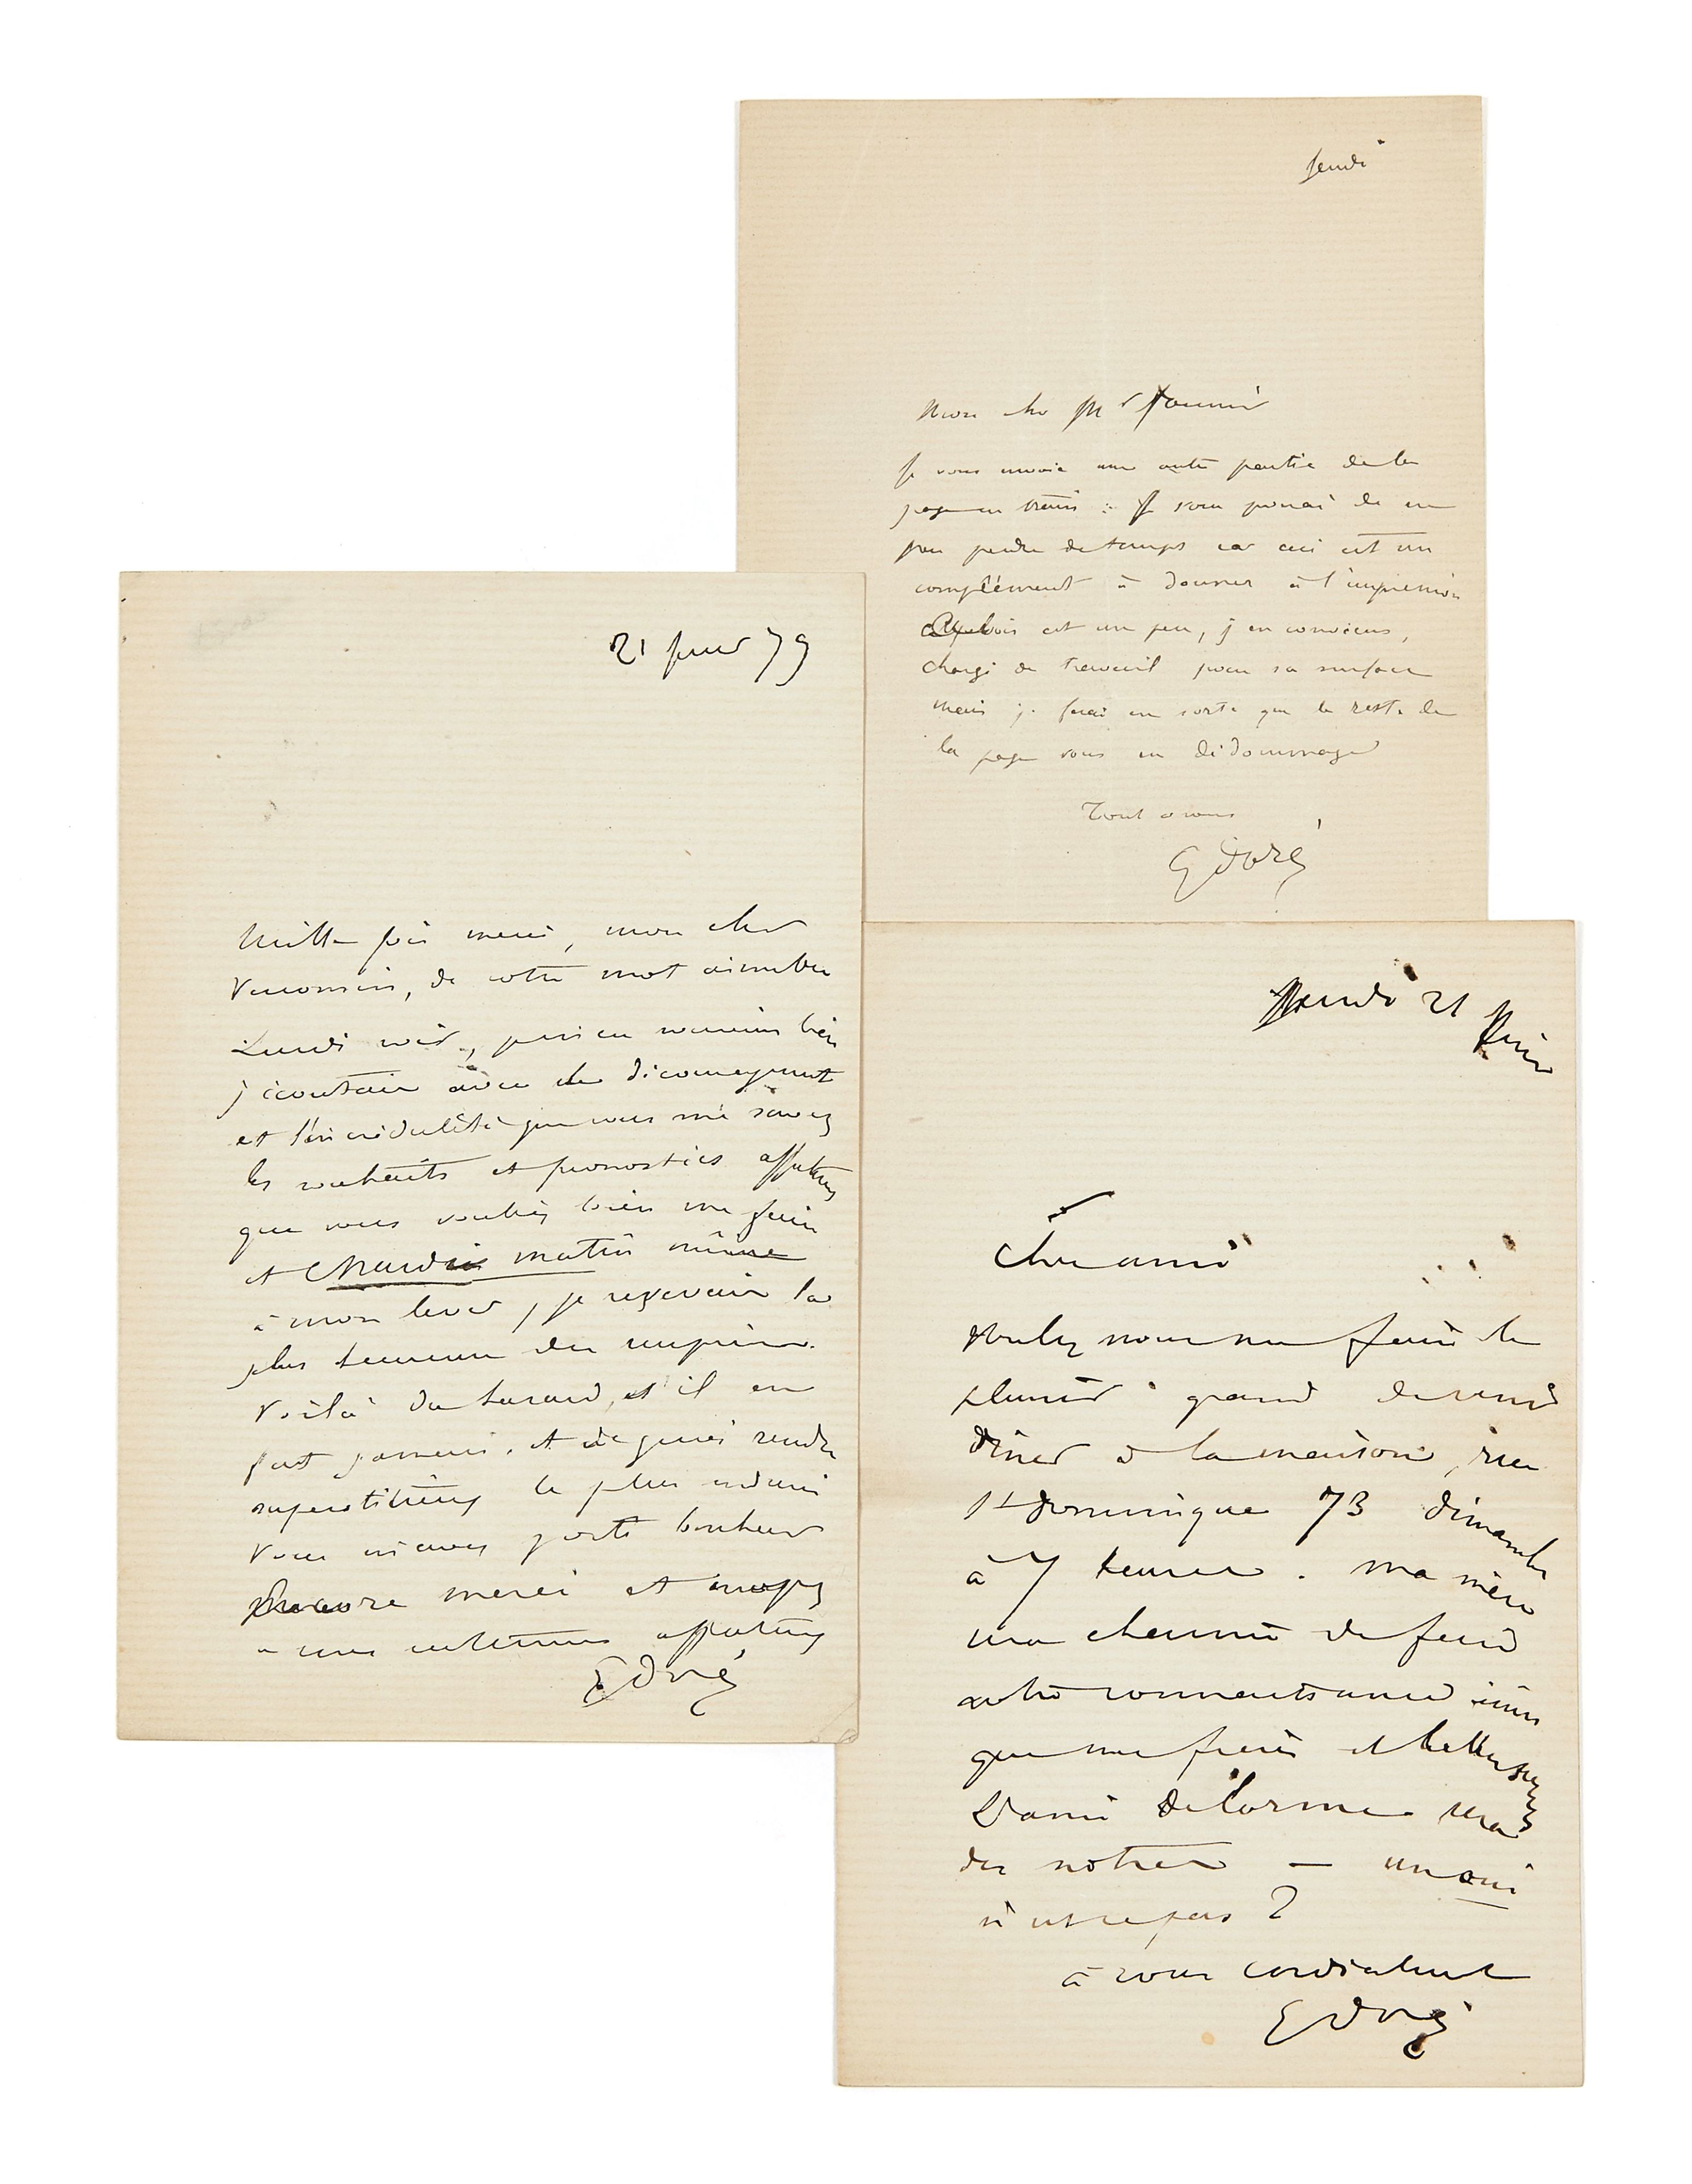 Jeudi
Mon cher Mr Fournier
Je vous envoie une autre partie de la
page en train : Je vous prierai de ne
pas perdre de temps car ceci est un
complément à donner à l'impression
est un peu, j'en conviens,
chargé de travail pour sa surface
mais je ferai en sorte que le reste de
la page vous en dédommage
Tout à vous
G Doré
21 79
Mille fois merci, mon cher
de votre mot aimable
Lundi soir,
j'écoutais avec le découragement
et l'incrédulité que vous me savez
les souhaits et pronostics affectueux
que vous vouliez bien me faire
et Mardi matin même
à mon lever, je recevais la
plus heureuse des surprises.
Voilà du hasard, et il en
fut jamais, et de quoi rendre
superstitieux le plus endurci
Vous m'avez porté bonheur
Encore merci et croyez
à mes sentiments affectueux
G Doré
21 Juin
Cher ami
Voulez vous me faire le
plaisir grand de venir
dîner à la maison, rue
St Dominique 73 dimanche
à 7 heures. ma mère
sera charmée de faire
votre connaissance ainsi
que mes frères et
L'ami Delorme sera
des nôtres — un oui
n'est ce pas ?
à vous cordialement
G Doré